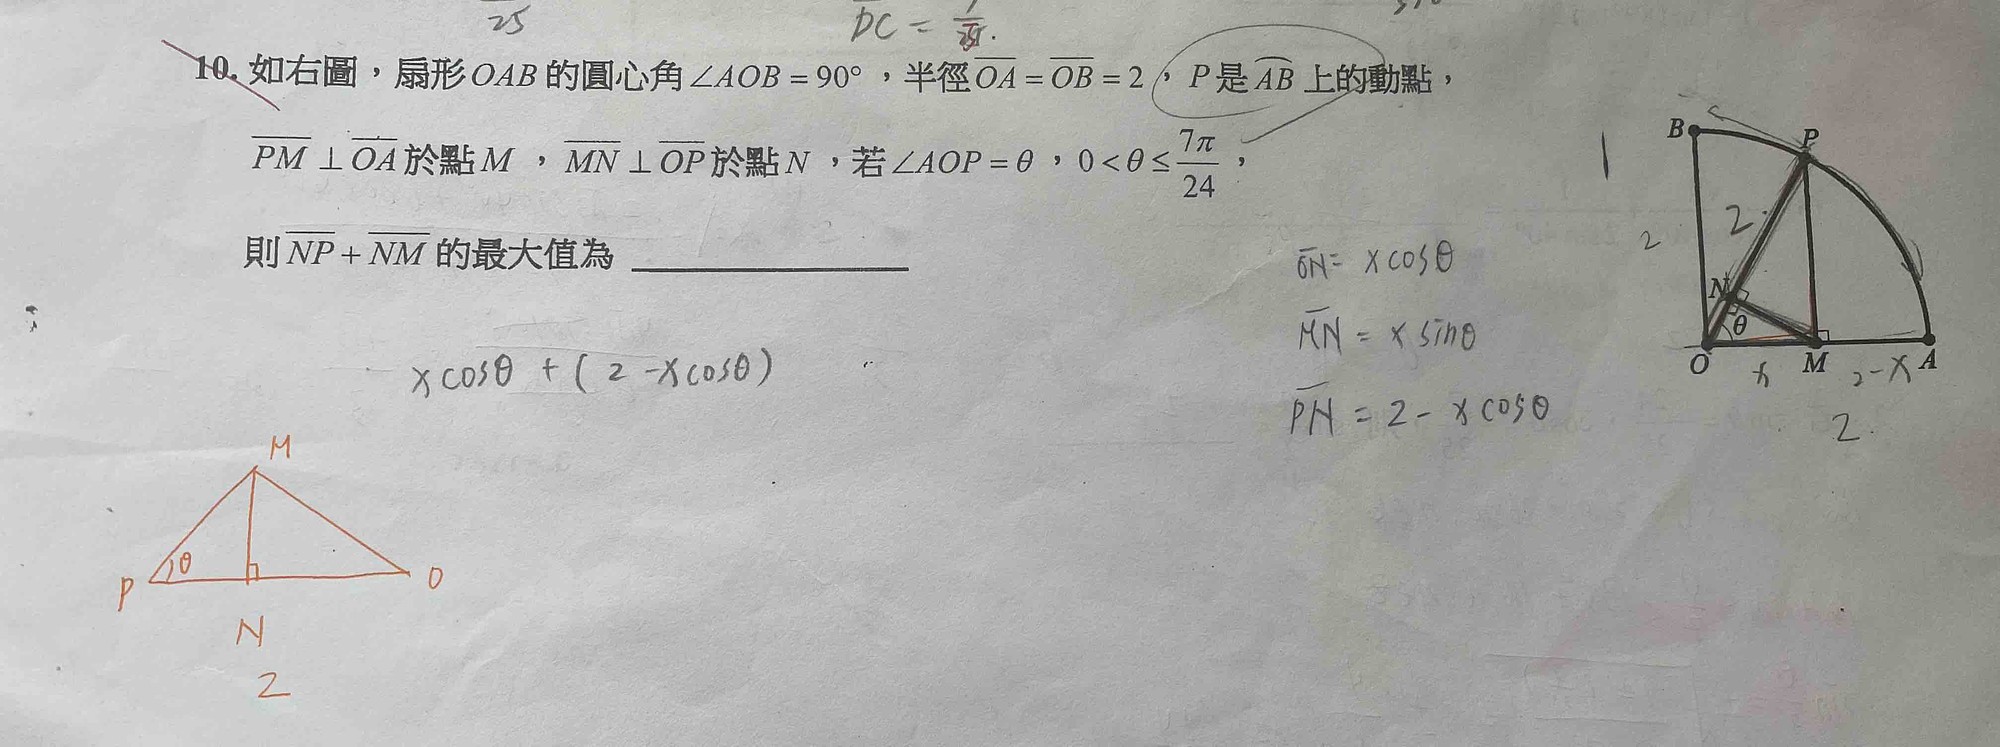 25
DC = 1/√5.
10. 如右圖,扇形OAB的圓心角∠AOB = 90°,半徑OA = OB = 2,P是AB上的動點,
PM ⊥ OA於點M,MN ⊥ OP於點N,若∠AOP = θ,0 < θ ≤ 7π/24,
則NP + NM的最大值為
xcosθ + ( 2 - xcosθ )
ON = xcosθ
MN = x sinθ
PN = 2 - xcosθ
B
P
2
2
N
θ
O
M
A
x
2-x
2
M
P
θ
O
N
2